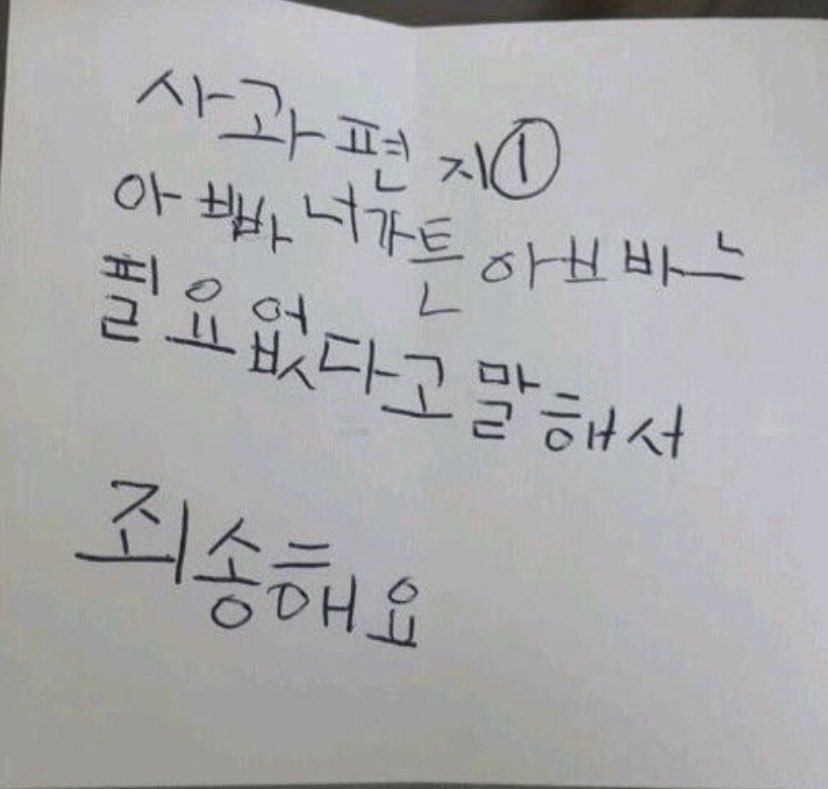 사과편지①
아빠 너가튼 아빠는
필요없다고말해서
죄송해요